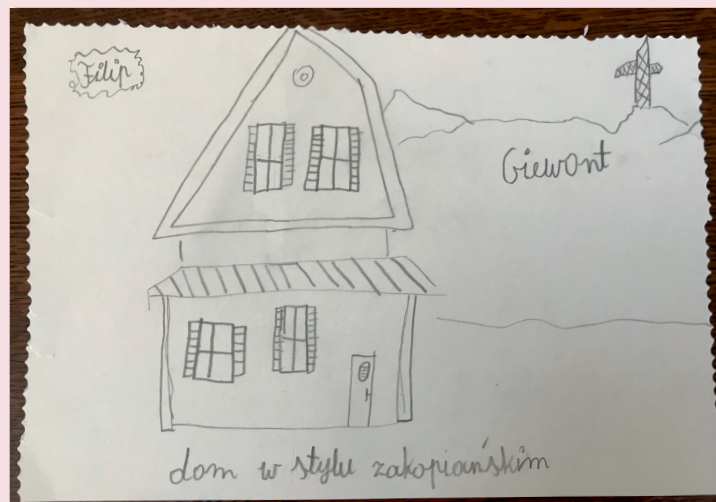 Filip
Giewont
dom w stylu zakopiańskim